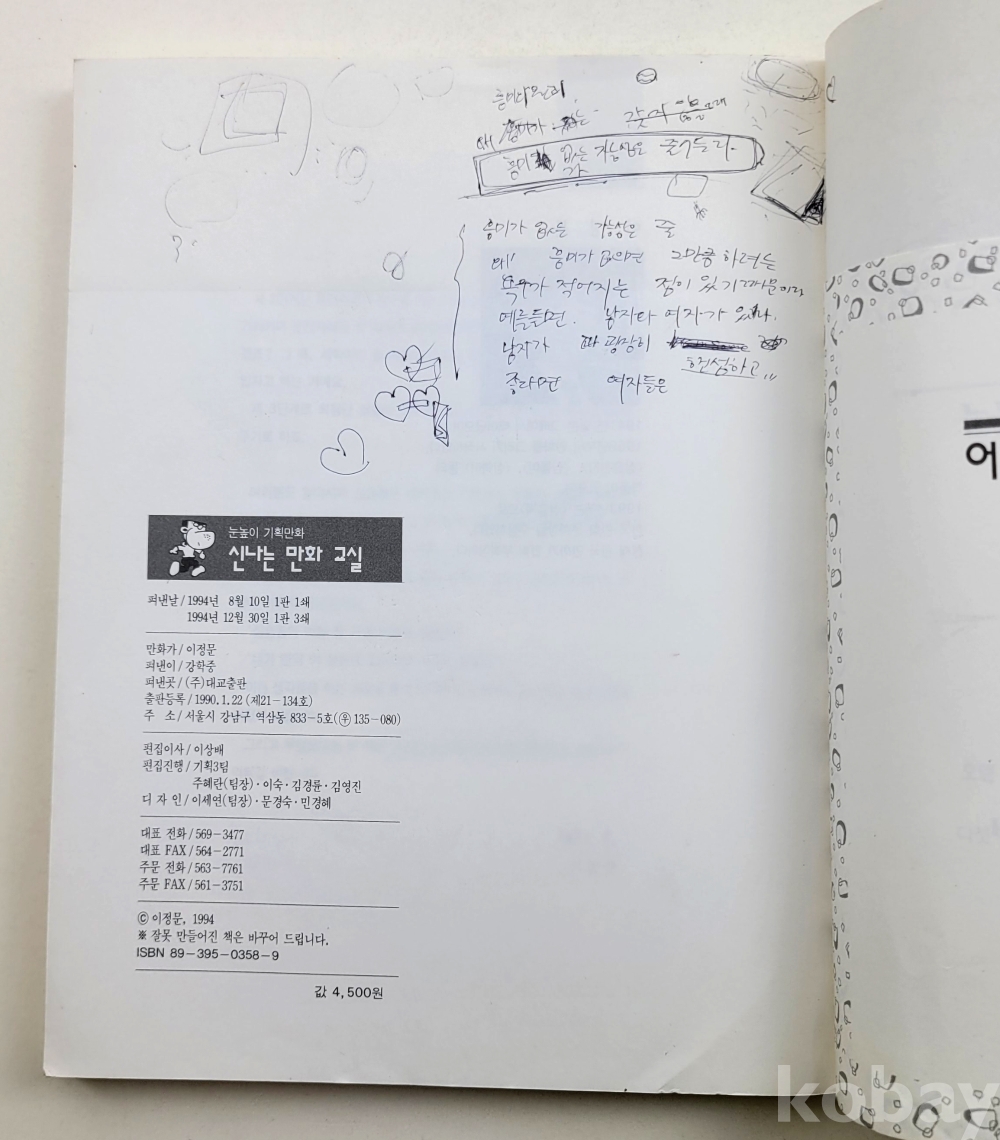 흥미 없는 가능성은 줄어들리.
가
흥미가 없는 가능성은 줄
흥미가 없으면 그만큼 하려는
욕구가 적어지는 점이 있기때문이다
예를들면. 남자다 여자가 있다.
남자가 굉장히
헌신하고
좋다면 여자들은
눈높이 기획만화
신나는 만화 교실
펴낸날/1994년 8월 10일 1판 1쇄
1994년 12월 30일 1판 3쇄
만화가/이정문
펴낸이/강학중
펴낸곳/(주)대교출판
출판등록/1990.1.22(제21-134호)
주 소/서울시 강남구 역삼동 833-5호(㉾135-080)
편집이사/이상배
편집진행/기획3팀
주혜란(팀장)·이숙·김경륜·김영진
디 자 인/이세연(팀장)·문경숙·민경혜
대표 전화/569-3477
대표 FAX/564-2771
주문 전화/563-7761
주문 FAX/561-3751
ⓒ 이정문, 1994
※ 잘못 만들어진 책은 바꾸어 드립니다.
ISBN 89-395-0358-9
값 4,500원
어
kobay